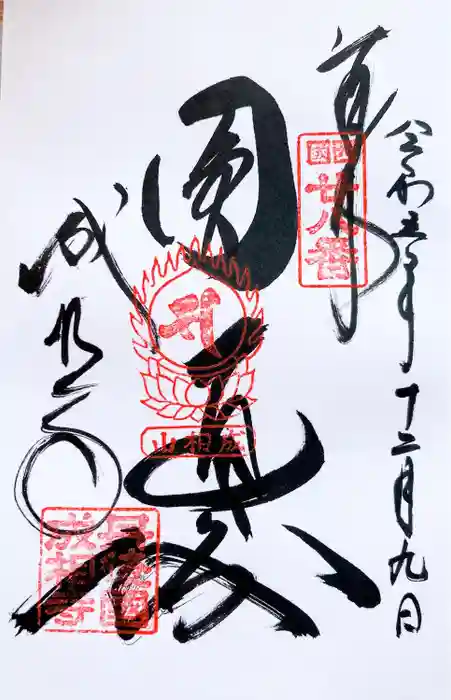 令和五年十二月九日
奉拝
西国廿八番
圓通殿
成相山
成相寺
丹後國成相寺